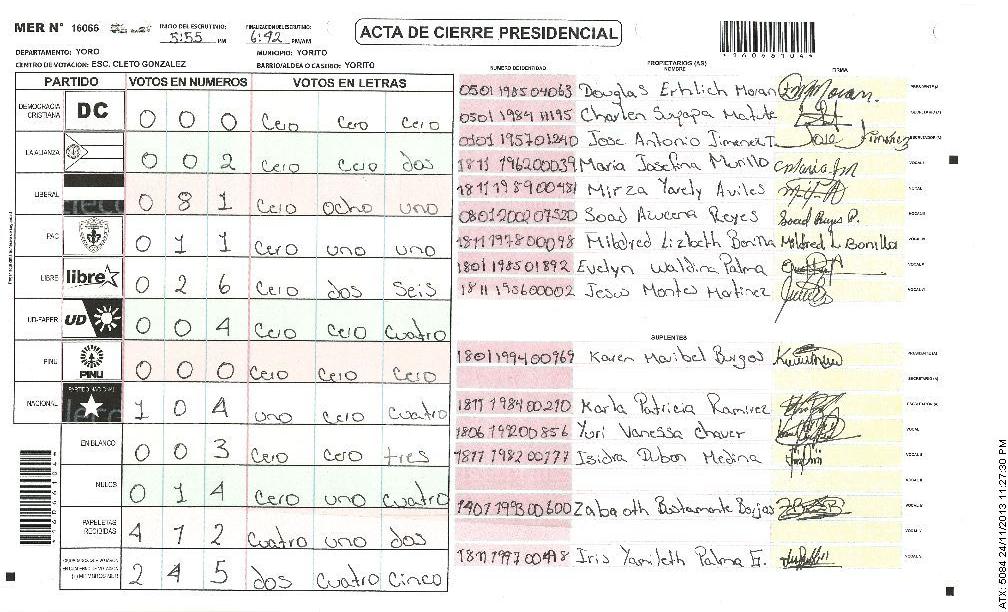 MER N° 16066 INICIO DEL ESCRUTINIO: 5:55 PM FINALIZACION ESCRUTINIO: 6:42 PM/AM ACTA DE CIERRE PRESIDENCIAL
DEPARTAMENTO: YORO MUNICIPIO: YORITO
CENTRO DE VOTACION: ESC. CLETO GONZALEZ BARRIO/ALDEA O CASERIO: YORITO
PARTIDO VOTOS EN NUMEROS VOTOS EN LETRAS
DEMOCRACIA CRISTIANA DC 0 0 0 Cero Cero Cero
LA ALIANZA 0 0 2 Cero Cero dos
LIBERAL 0 8 1 Cero Ocho uno
PAC 0 1 1 Cero uno uno
LIBRE libre 0 2 6 Cero dos Seis
UD-FAPER UD 0 0 4 Cero Cero Cuatro
PINU PINU 0 0 0 Cero Cero Cero
NACIONAL PARTIDO NACIONAL 1 0 4 uno Cero Cuatro
EN BLANCO 0 0 3 Cero Cero tres
NULOS 0 1 4 Cero uno Cuatro
PAPELETAS RECIBIDAS 4 1 2 Cuatro uno dos
2 4 5 dos Cuatro Cinco
NUMERO DE IDENTIDAD PROPIETARIOS (AS) NOMBRE FIRMA
0501 1985 04063 Douglas Erhlich Moran PRESIDENTE(A)
0501 1984 11195 Charlen Suyapa Matute SECRETARIO(A)
0501 1957 01240 Jose Antonio Jimenez T. Jose Jimenez ESCRUTADOR(A)
1811 1962 00039 Maria Josefina Murillo Maria JM VOCAL I
1811 1989 00481 Mirza Yarely Aviles VOCAL II
0801 2002 07520 Soad Azucena Reyes Soad Reyes P. VOCAL III
1811 1978 00098 Mildred Lizbeth Bonilla Mildred L Bonilla VOCAL IV
1801 1985 01892 Evelyn Waldina Palma VOCAL V
1811 1956 00002 Jesus Montes Martinez VOCAL VI
SUPLENTES
1801 1994 00969 Karen Maribel Burgos PRESIDENTE(A)
SECRETARIO(A)
1811 1984 00210 Karla Patricia Ramirez ESCRUTADOR(A)
1806 1992 00856 Yuri Vanessa Chavez VOCAL I
1811 1982 00177 Isidra Dubon Medina VOCAL II
VOCAL III
1401 1993 00600 Zabaoth Bustamante Borjas VOCAL IV
VOCAL V
1811 1997 00418 Iris Yamileth Palma E. VOCAL VI
ATX: 5084 24/11/2013 11:27:30 PM